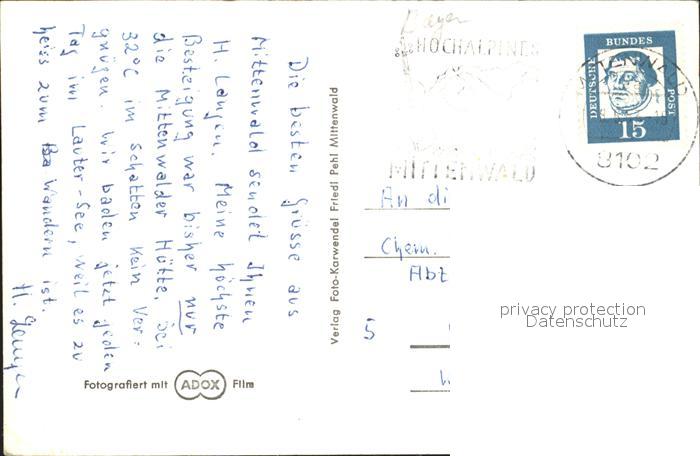 Die besten Grüsse aus
Mittenwald sendet Ihnen
H. Langen. Meine höchste
Besteigung war bisher nur
die Mittenwalder Hütte, bei
32°C im Schatten kein Ver=
gnügen. Wir baden jetzt jeden
Tag im Lauter-See, weil es zu
heiss zum Wandern ist.
H.
Fotografiert mit ADOX Film
Verlag Foto-Karwendel Friedl Pehl Mittenwald
HOCHALPINES
MITTENWALD
DEUTSCHE BUNDESPOST
15
MITTENWALD
8102
An di
Chem.
Abt
5
privacy protection
Datenschutz